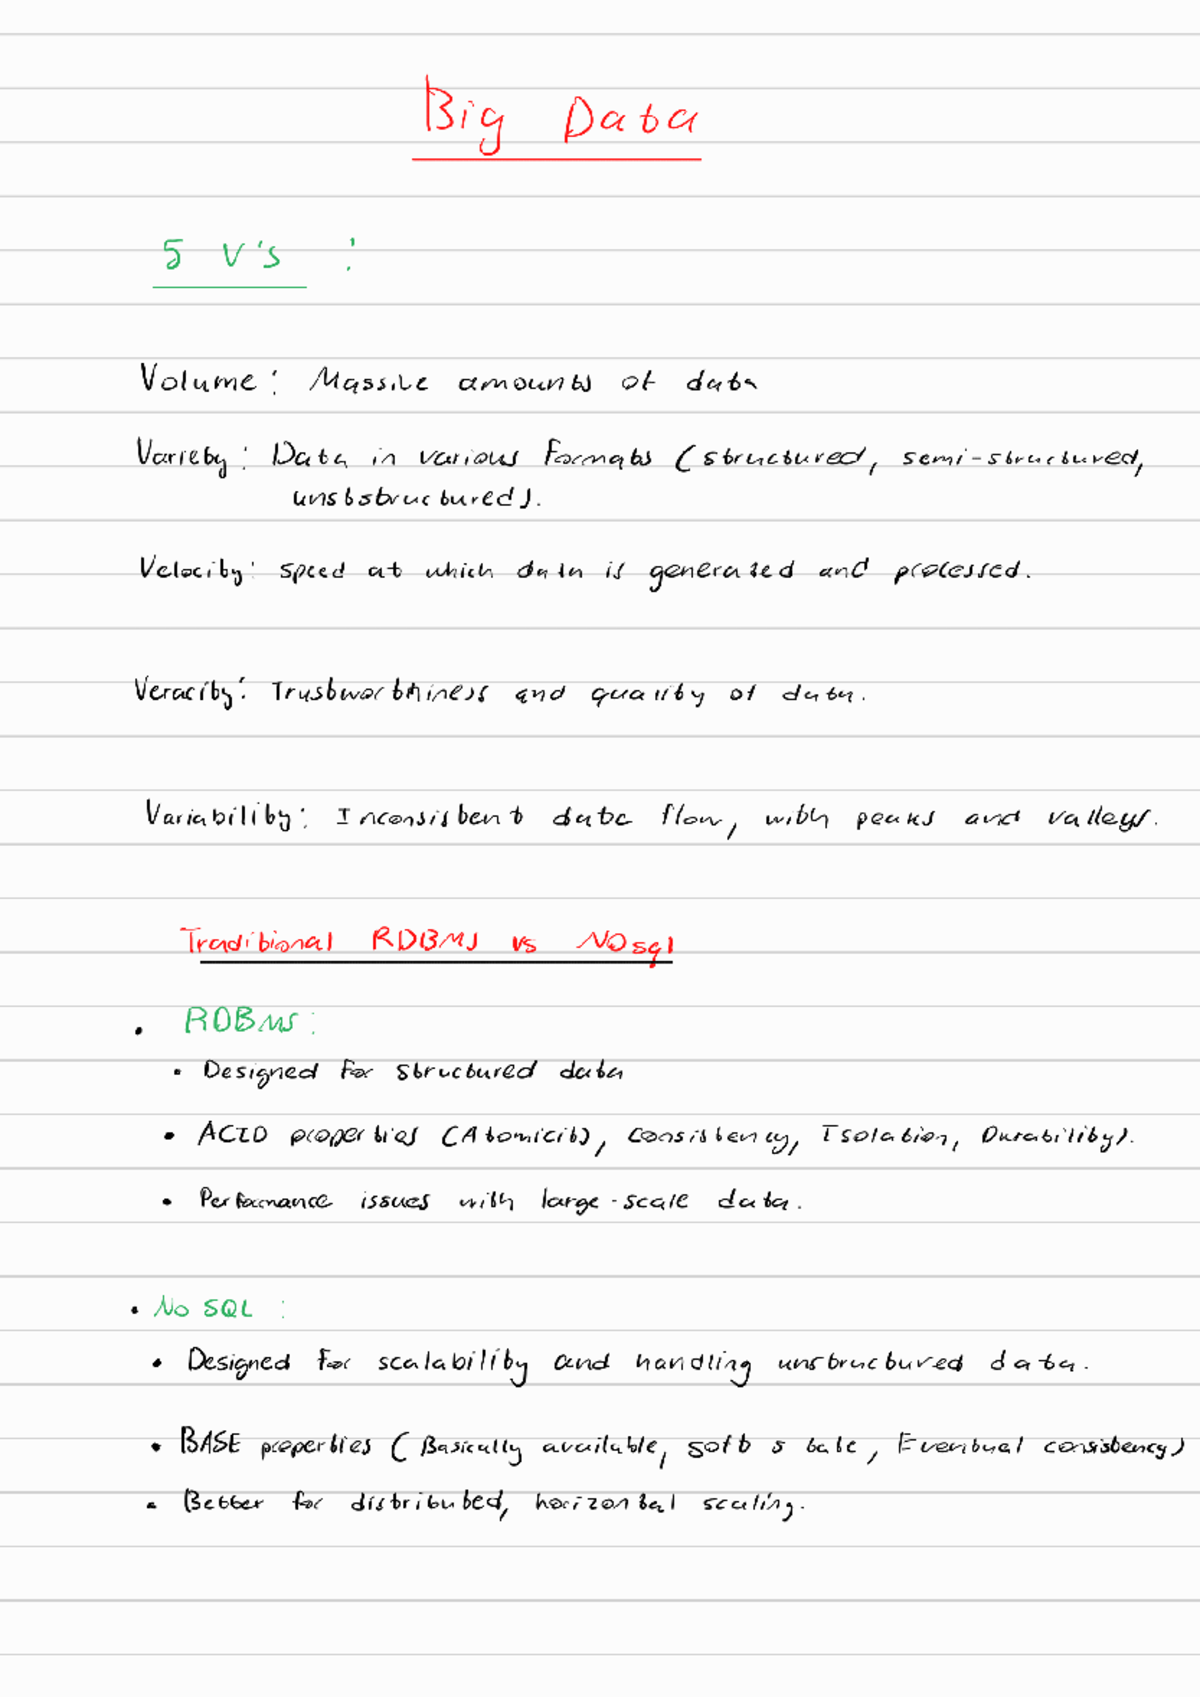 Big Data
5 V's :
Volume: Massive amounts of data
Variety: Data in various Formats (structured, semi-structured,
unststructured).
Velocity: speed at which data is generated and processed.
Veracity: Trustworthiness and quality of data.
Variability: Inconsistent data flow, with peaks and valleys.
Traditional RDBMS vs NOsql
• RDBMS:
• Designed for structured data
• ACID properties (Atomicity, Consistency, Isolation, Durability).
• Performance issues with large-scale data.
• No SQL :
• Designed for scalability and handling unstructured data.
• BASE properties (Basically available, soft state, Eventual consistency)
• Better for distributed, horizontal scaling.